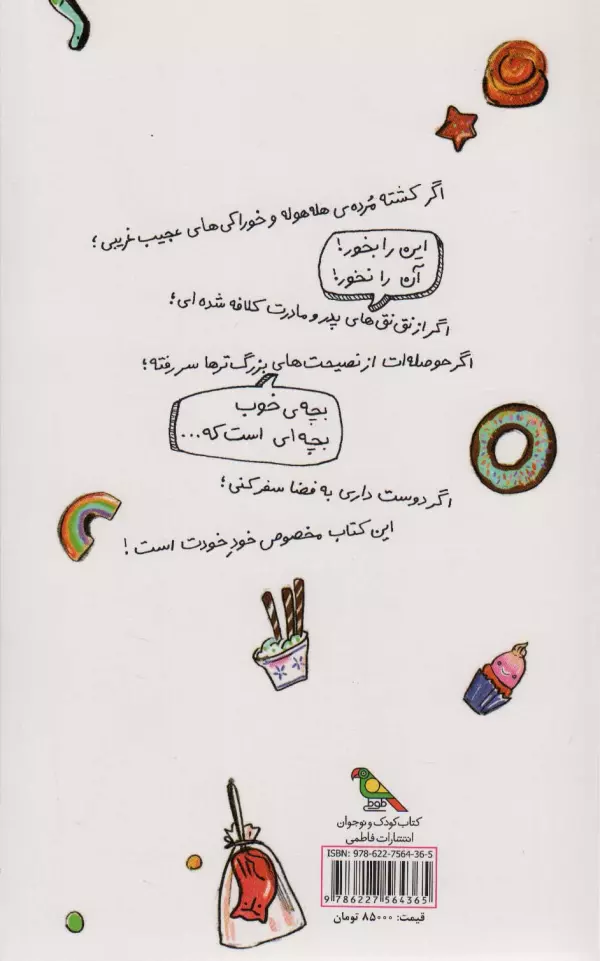 اگر کشته مُرده‌ی هله‌هوله و خوراکی‌های عجیب غریبی؛
این را بخور!
آن را نخور!
اگر از نق‌نق‌های پدر و مادرت کلافه شده‌ای؛
اگر حوصله‌ات از نصیحت‌های بزرگ‌ترها سر رفته؛
بچه‌ی خوب
بچه‌ای است که...
اگر دوست داری به فضا سفر کنی؛
این کتاب مخصوص خودِ خودت است!
طوطی
کتاب کودک و نوجوان
انتشارات فاطمی
ISBN: 978-622-7564-36-5
9 786227 564365
قیمت: ۸۵۰۰۰ تومان